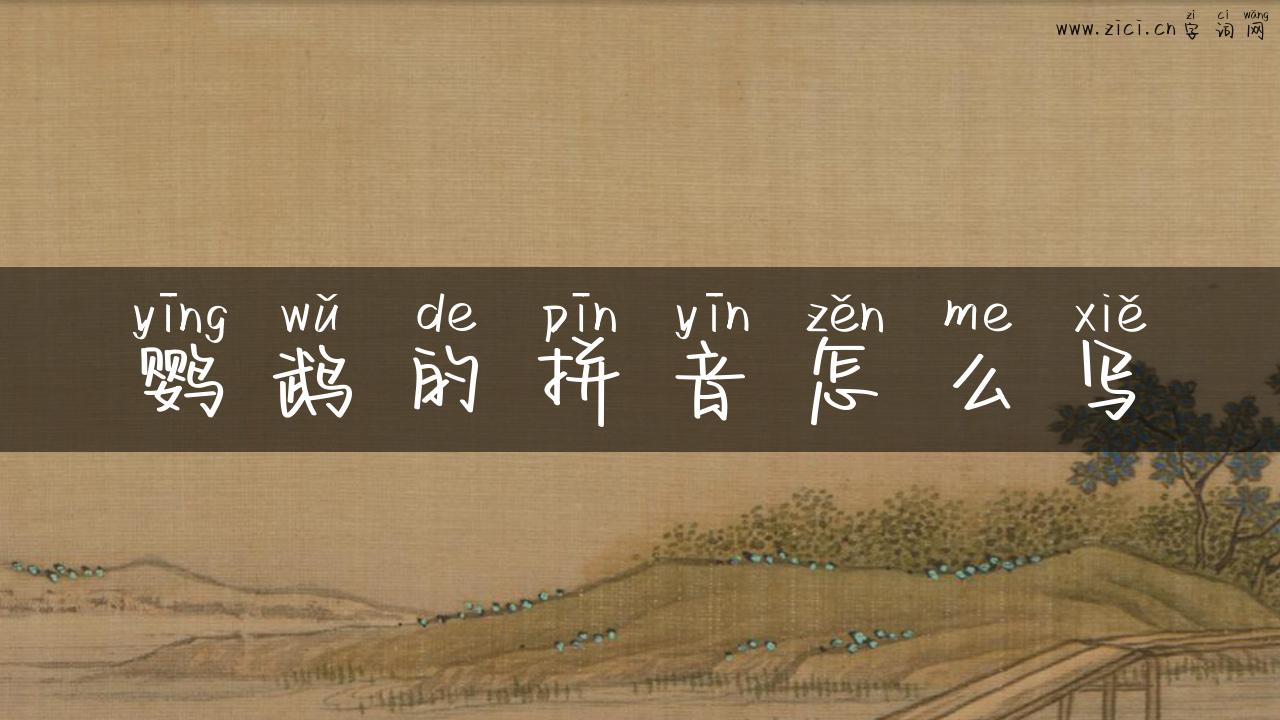 zì cí wǎng
www.zici.cn字词网
yīng wǔ de pīn yīn zěn me xiě
鹦鹉的拼音怎么写